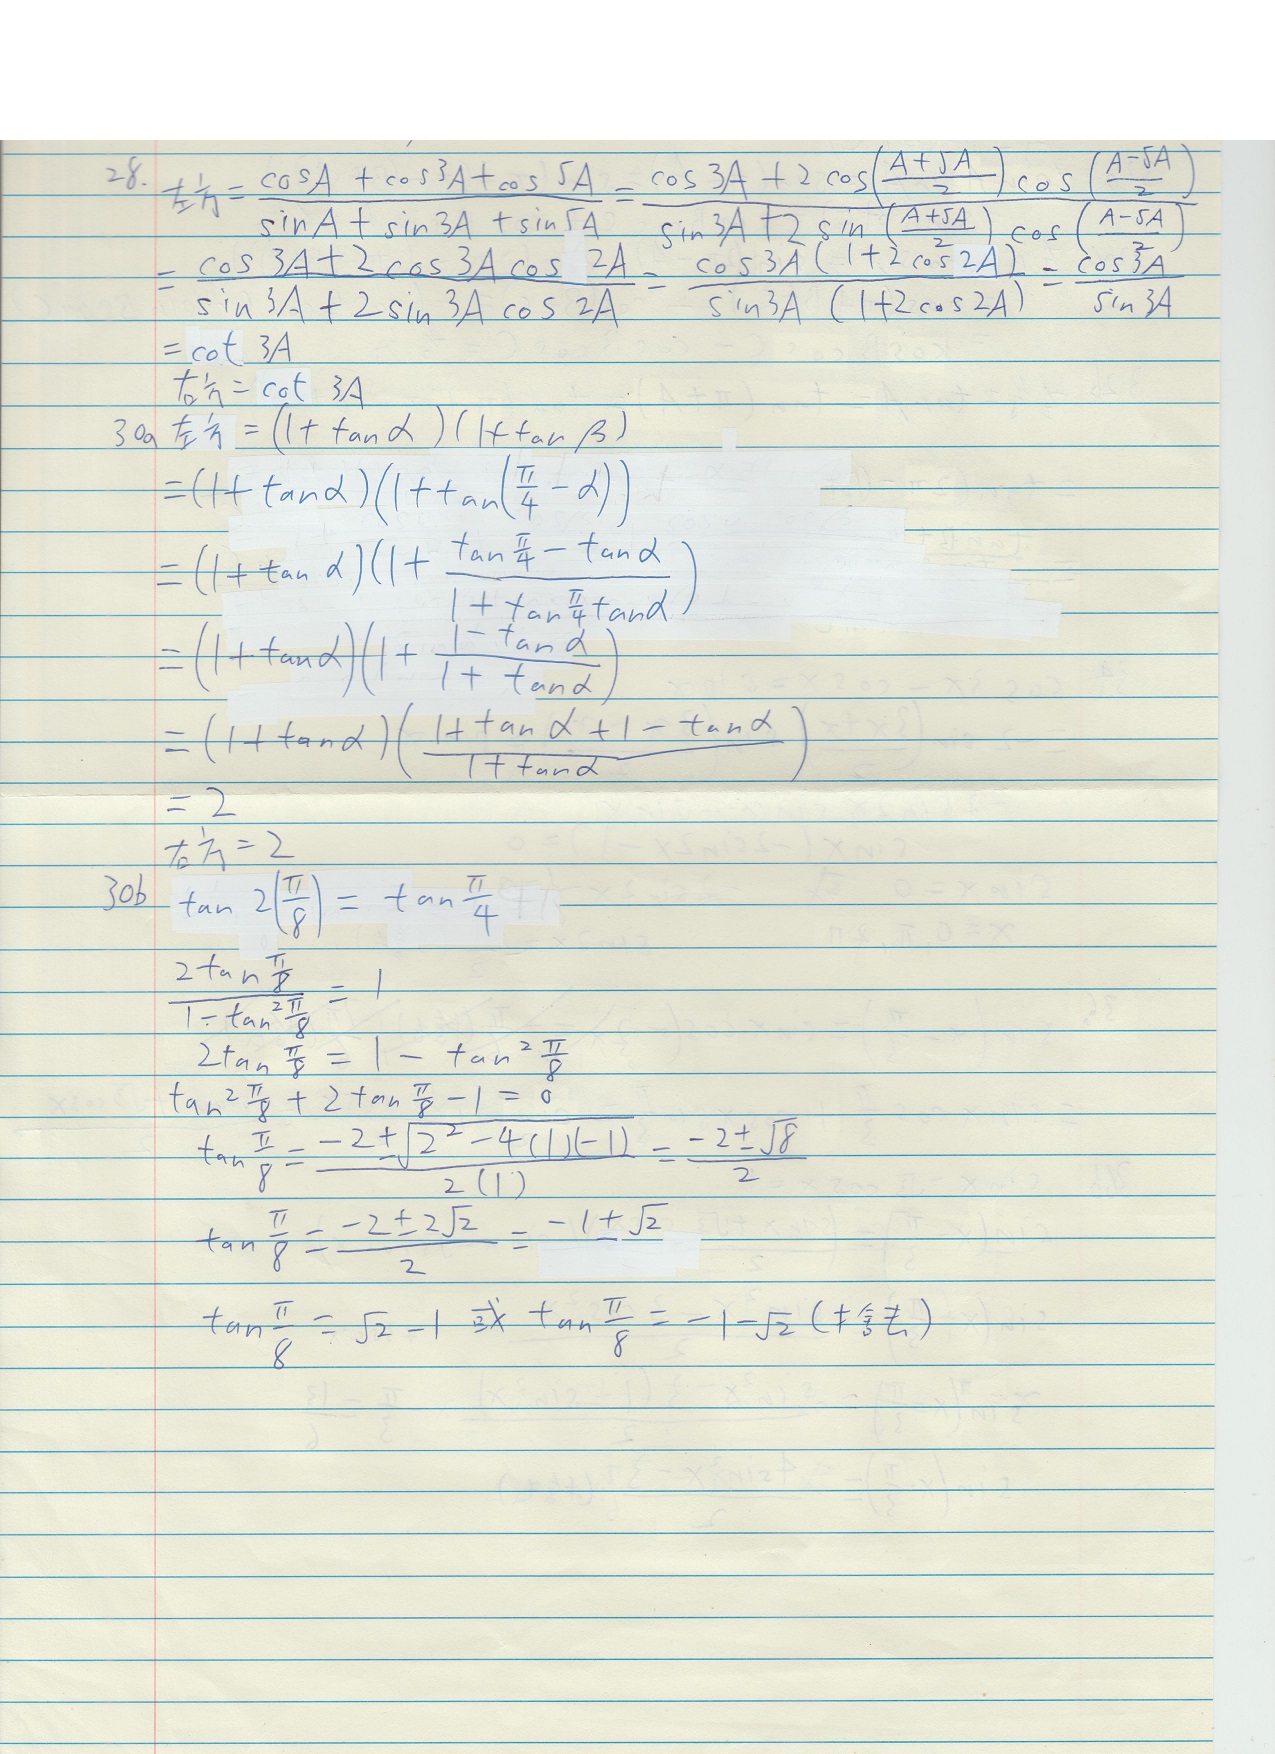 28. 左方 = (cosA + cos3A + cos 5A)/(sinA + sin3A + sin5A) = (cos 3A + 2 cos((A+5A)/2) cos((A-5A)/2))/(sin3A + 2 sin((A+5A)/2) cos((A-5A)/2))
= (cos 3A + 2 cos 3A cos 2A)/(sin 3A + 2 sin 3A cos 2A) = (cos 3A (1+2 cos 2A))/(sin 3A (1+2 cos 2A)) = (cos 3A)/(sin 3A)
= cot 3A
右方 = cot 3A
30a 左方 = (1 + tan α)(1 + tan β)
= (1 + tan α)(1 + tan(π/4 - α))
= (1 + tan α)(1 + (tan π/4 - tan α)/(1 + tan π/4 tan α))
= (1 + tan α)(1 + (1 - tan α)/(1 + tan α))
= (1 + tan α)((1 + tan α + 1 - tan α)/(1 + tan α))
= 2
右方 = 2
30b tan 2(π/8) = tan π/4
(2 tan π/8)/(1 - tan² π/8) = 1
2 tan π/8 = 1 - tan² π/8
tan² π/8 + 2 tan π/8 - 1 = 0
tan π/8 = (-2 ± √(2² - 4(1)(-1)))/(2(1)) = (-2 ± √8)/2
tan π/8 = (-2 ± 2√2)/2 = -1 ± √2
tan π/8 = √2 - 1 或 tan π/8 = -1 - √2 (捨去)